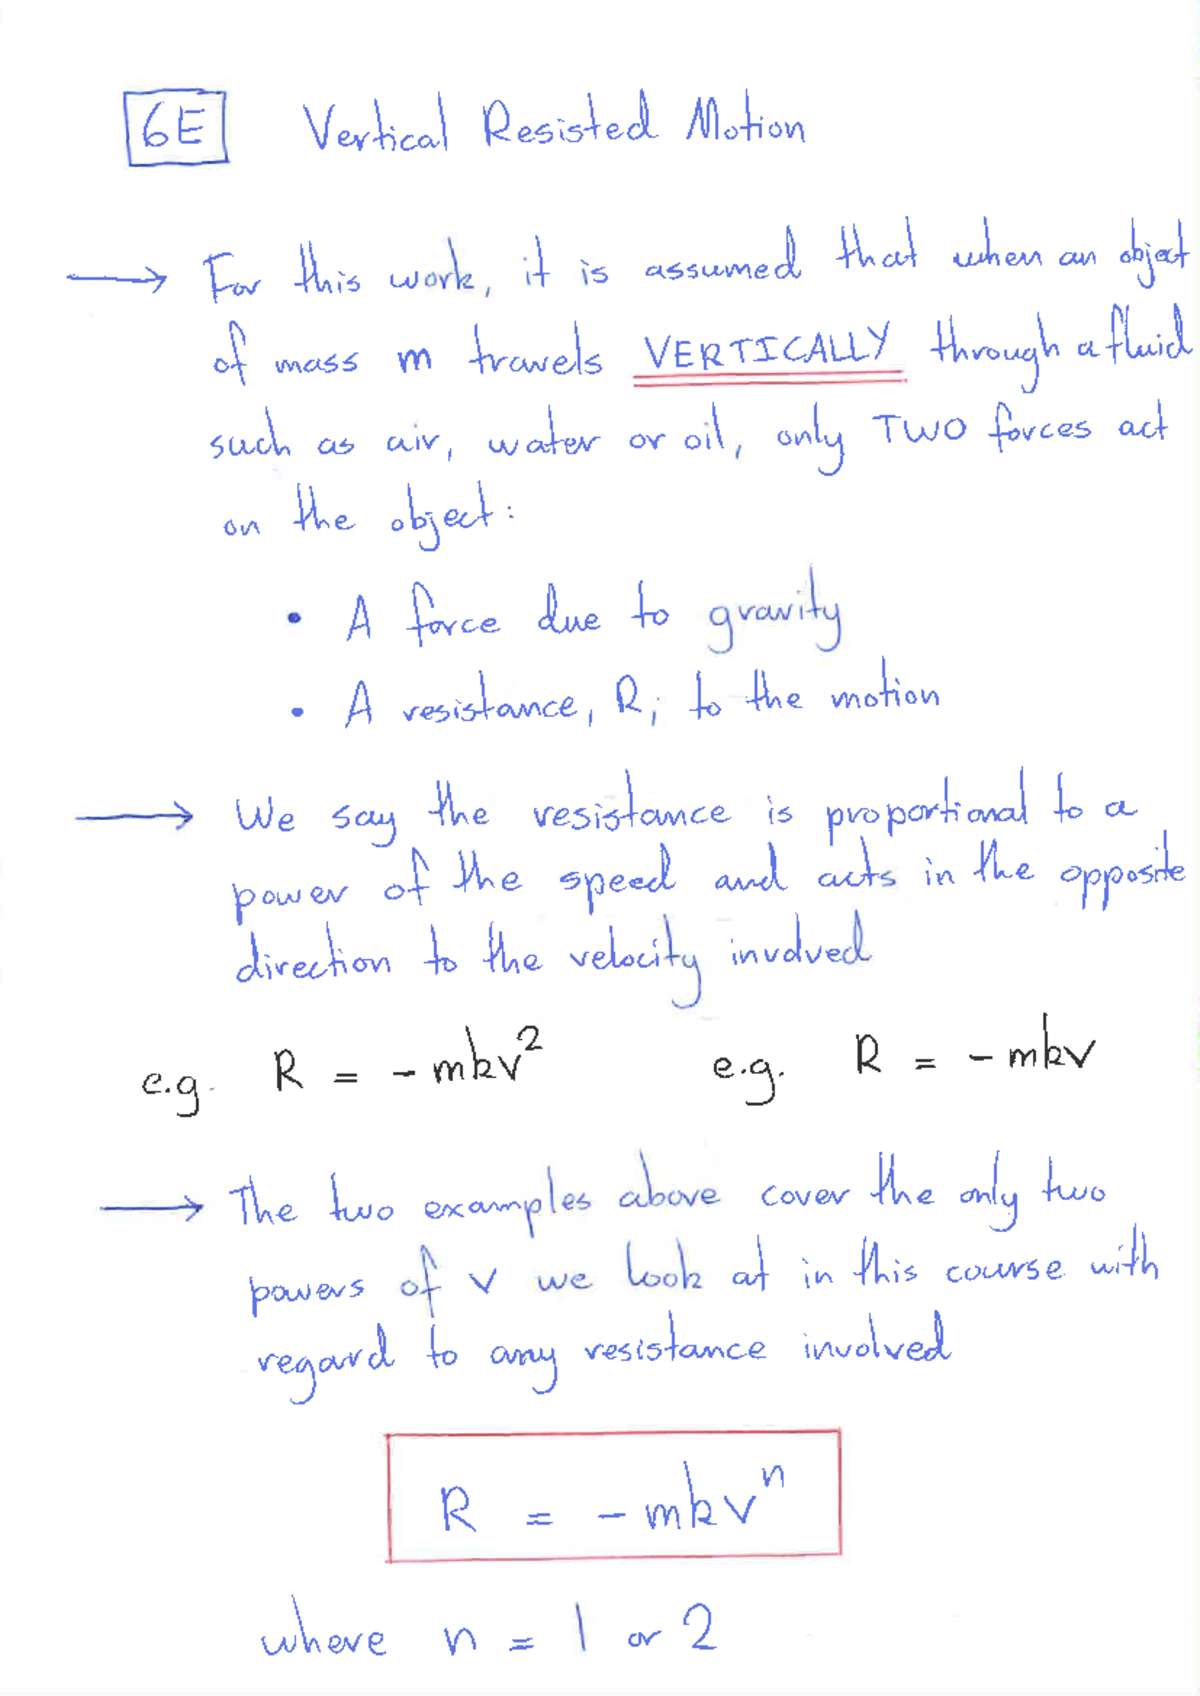 6E Vertical Resisted Motion
→ For this work, it is assumed that when an object
of mass m travels VERTICALLY through a fluid
such as air, water or oil, only TWO forces act
on the object:
• A force due to gravity
• A resistance, R, to the motion
→ We say the resistance is proportional to a
power of the speed and acts in the opposite
direction to the velocity involved
e.g. R = - mkv² e.g. R = - mkv
→ The two examples above cover the only two
powers of v we look at in this course with
regard to any resistance involved
R = - mkvⁿ
where n = 1 or 2